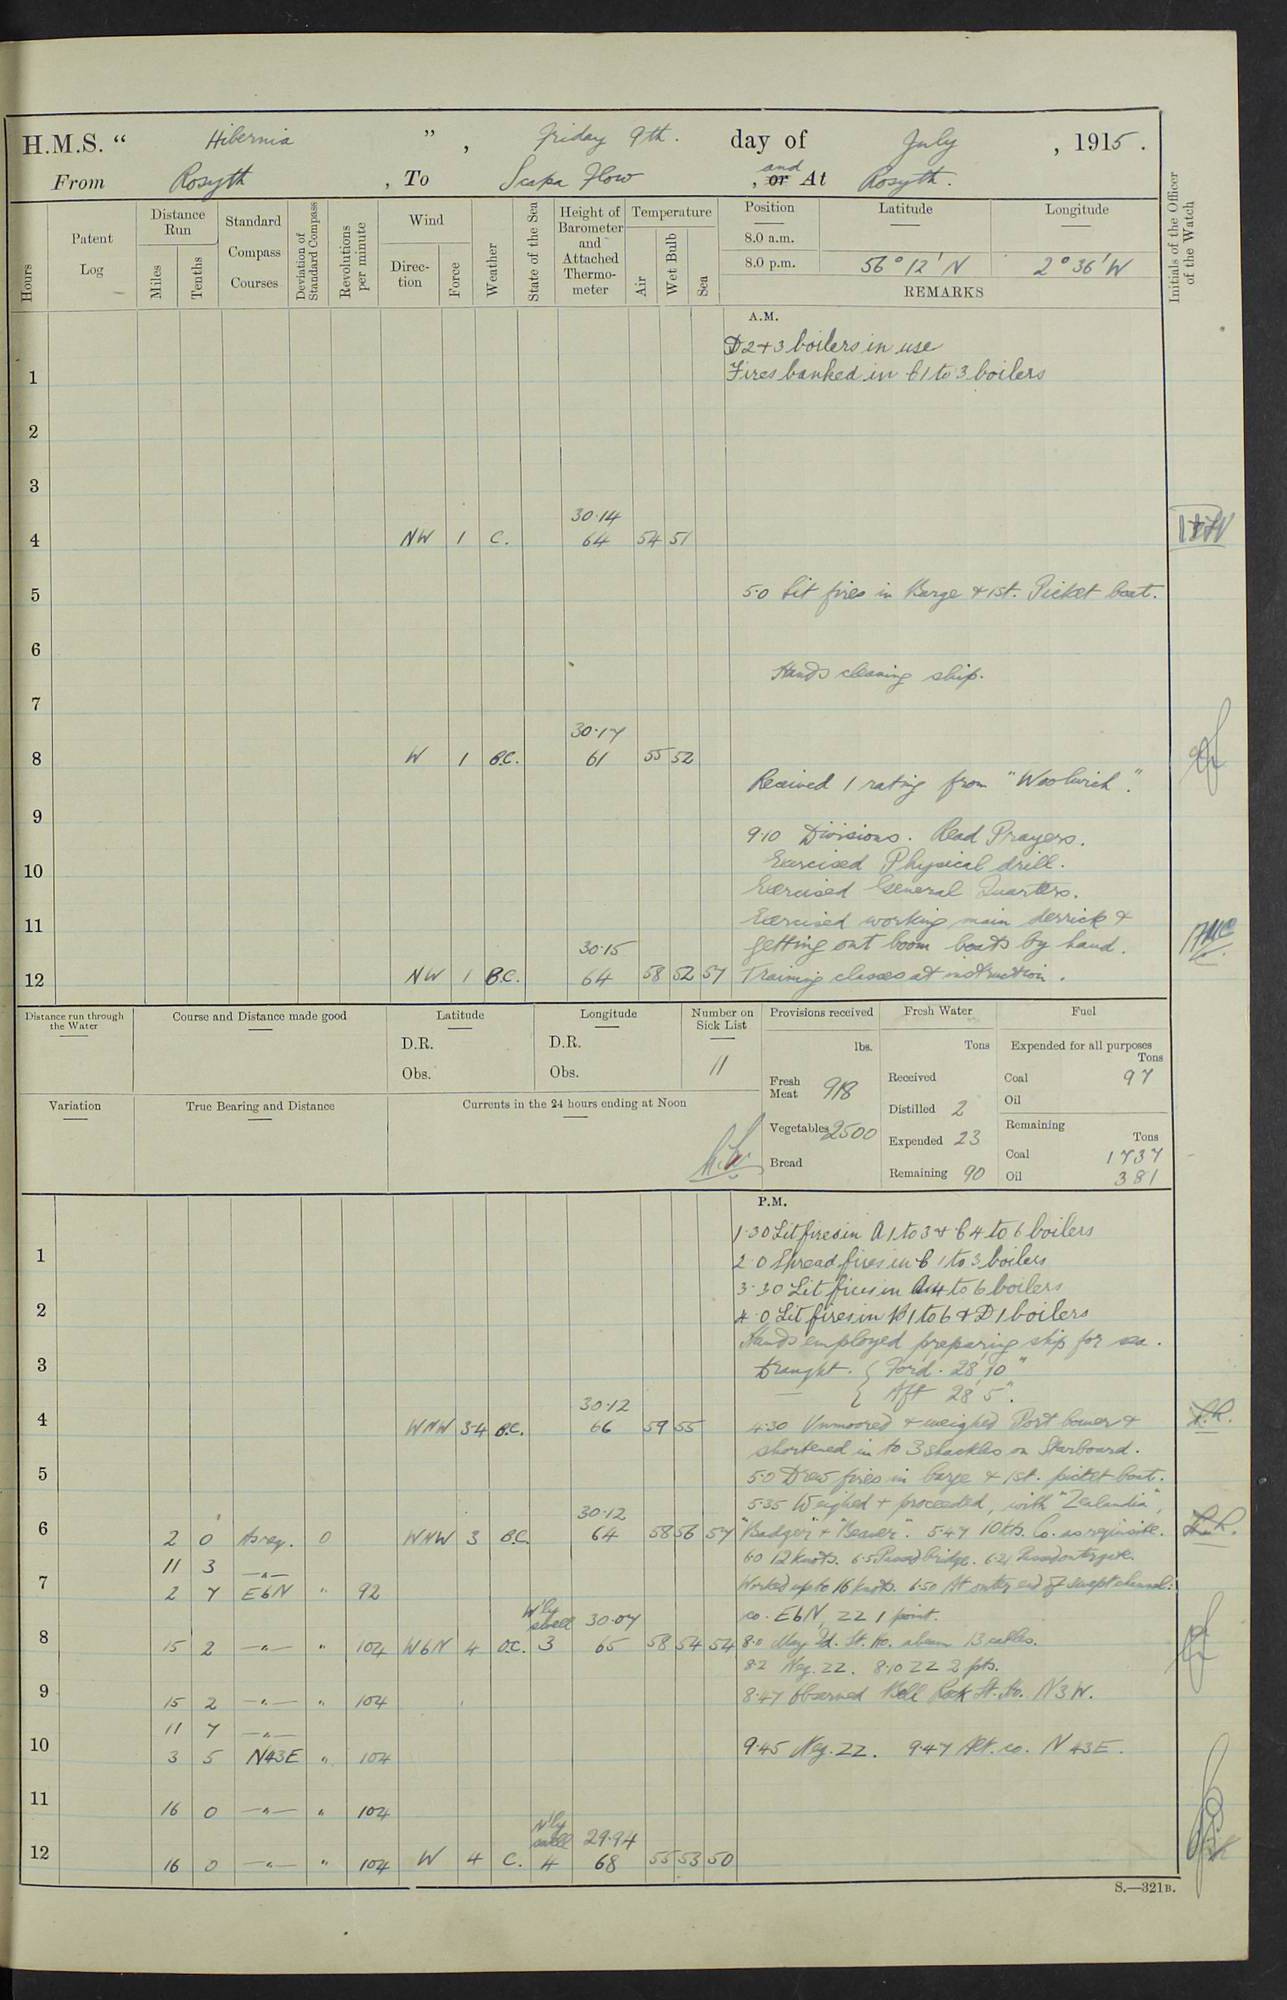 H.M.S. “ Hibernia ” , Friday 9th. day of July , 1915 .
From Rosyth , To Scapa Flow , or and At Rosyth.
Hours
Patent Log
Distance Run
Miles
Tenths
Standard Compass Courses
Deviation of Standard Compass
Revolutions per minute
Wind
Direc- tion
Force
Weather
State of the Sea
Height of Barometer and Attached Thermo- meter
Temperature
Air
Wet Bulb
Sea
Position
8.0 a.m.
8.0 p.m.
Latitude
56° 12' N
Longitude
2° 36' W
REMARKS
Initials of the Officer of the Watch
A.M.
D2+3 boilers in use
1 Fires banked in C1 to 3 boilers
2
3
30·14
4 NW 1 C. 64 54 51
5 5·0 Lit fires in Barge & 1st. Picket boat.
6
Hands cleaning ship.
7
30·17
8 W 1 B.C. 61 55 52
Received 1 rating from "Woolwich".
9
9·10 Divisions. Read Prayers.
10 Exercised Physical drill.
Exercised General Quarters.
11 Exercised working main derrick &
30·15 getting out boom boats by hand.
12 NW 1 B.C. 64 58 52 57 Training classes at instruction.
Distance run through the Water
Course and Distance made good
Latitude
D.R.
Obs.
Longitude
D.R.
Obs.
Number on Sick List
11
Provisions received
lbs.
Fresh Meat 918
Vegetables 2500
Bread
Fresh Water
Tons
Received
Distilled 2
Expended 23
Remaining 90
Fuel
Expended for all purposes
Tons
Coal 97
Oil
Remaining
Tons
Coal 1737
Oil 381
Variation
True Bearing and Distance
Currents in the 24 hours ending at Noon
P.M.
1·30 Lit fires in A 1 to 3 & C 4 to 6 boilers
1 2·0 Spread fires in C 1 to 3 boilers
3·30 Lit fires in A 4 to 6 boilers
2 4·0 Lit fires in B 1 to 6 & D 1 boilers
Hands employed preparing ship for sea.
3 Draught. { For'd. 28' 10"
{ Aft 28' 5".
30·12
4 WNW 3-4 B.C. 66 59 55 4·30 Unmoored & weighed Port bower &
shortened in to 3 shackles on Starboard.
5 5·0 Drew fires in barge & 1st. picket boat.
30·12 5·35 Weighed & proceeded, with "Zealandia",
6 2 0 As req. 0 WNW 3 B.C. 64 58 56 57 "Badger" & "Beaver". 5·47 10 kts. Co. as requisite.
11 3 —"— 6·0 12 knots. 6·5 Passed bridge. 6·21 Passed outer gate.
7 2 7 EbN " 92 Worked up to 16 knots. 6·50 At outer end of swept channel:
W'ly swell 30·07 co. EbN, ZZ 1 point.
8 15 2 —"— " 104 WbN 4 O.C. 3 65 58 54 54 8·0 May Id. Lt. Ho. abeam 13 cables.
8·2 Neg. ZZ. 8·10 ZZ 2 pts.
9 15 2 —"— " 104 8·47 Observed Bell Rock Lt. Ho. N3W.
11 7 —"—
10 3 5 N43E " 104 9·45 Neg. ZZ. 9·47 Alt. co. N43E.
11 16 0 —"— " 104
N'ly swell 29·94
12 16 0 —"— " 104 W 4 C. 4 68 55 53 50
S.—321B.